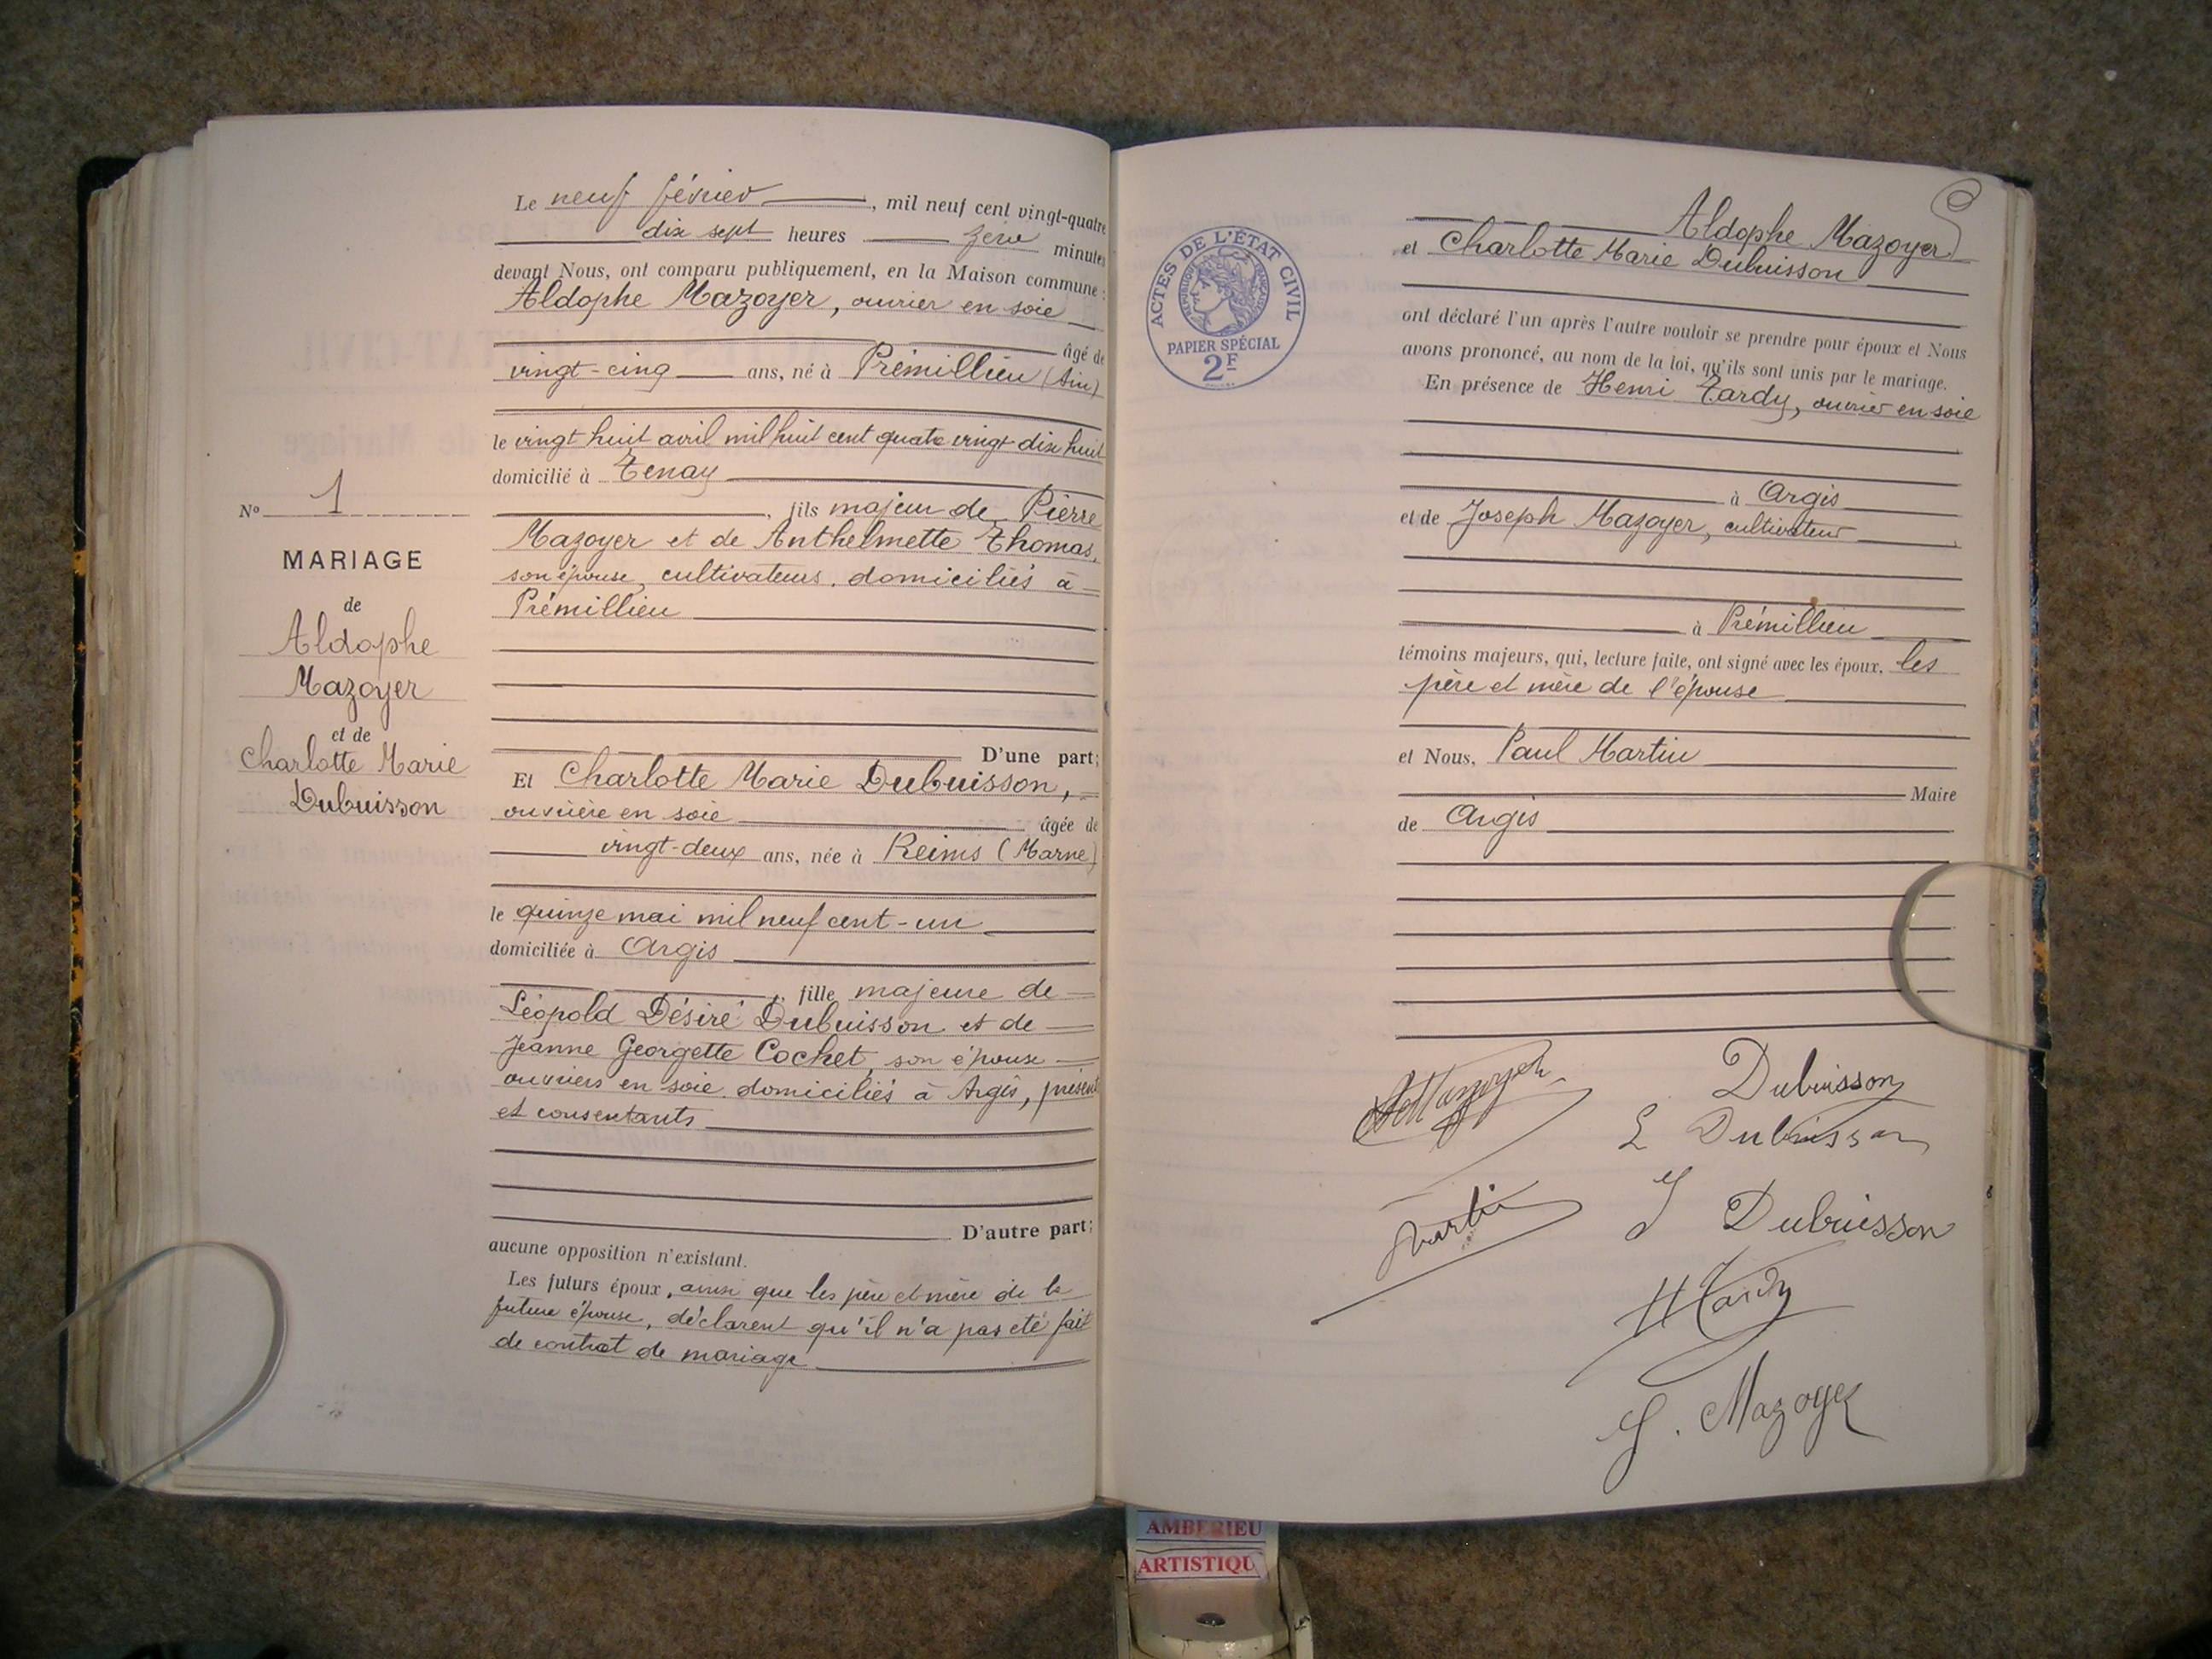 Le neuf février, mil neuf cent vingt-quatre
dix sept heures zéro minutes
devant Nous, ont comparu publiquement, en la Maison commune :
Aldophe Mazoyer, ouvrier en soie
âgé de
vingt-cinq ans, né à Prémillieu (Ain)
le vingt huit avril mil huit cent quatre vingt dix huit
domicilié à Tenay
, fils majeur de Pierre
Mazoyer et de Anthelmette Thomas,
son épouse, cultivateurs, domiciliés à
Prémillieu
D'une part;
Et Charlotte Marie Dubuisson,
ouvrière en soie âgée de
vingt-deux ans, née à Reims (Marne)
le quinze mai mil neuf cent-un
domiciliée à Argis
, fille majeure de
Léopold Désiré Dubuisson et de
Jeanne Georgette Cochet, son épouse
ouvriers en soie, domiciliés à Argis, présents
et consentants
D'autre part;
aucune opposition n'existant.
Les futurs époux, ainsi que les père et mère de la
future épouse, déclarent qu'il n'a pas été fait
de contrat de mariage
No 1
MARIAGE
de
Aldophe
Mazoyer
et de
Charlotte Marie
Dubuisson
ACTES DE L'ÉTAT CIVIL
RÉPUBLIQUE FRANÇAISE
PAPIER SPÉCIAL
2F
Aldophe Mazoyer
et Charlotte Marie Dubuisson
ont déclaré l'un après l'autre vouloir se prendre pour époux et Nous
avons prononcé, au nom de la loi, qu'ils sont unis par le mariage.
En présence de Henri Tardy, ouvrier en soie
à Argis
et de Joseph Mazoyer, cultivateur
à Prémillieu
témoins majeurs, qui, lecture faite, ont signé avec les époux, les
père et mère de l'épouse
et Nous, Paul Martin
Maire
de Argis
Mazoyer
Dubuisson
L Dubuisson
J Dubuisson
Martin
H Tardy
J. Mazoyer
AMBERIEU
ARTISTIQU